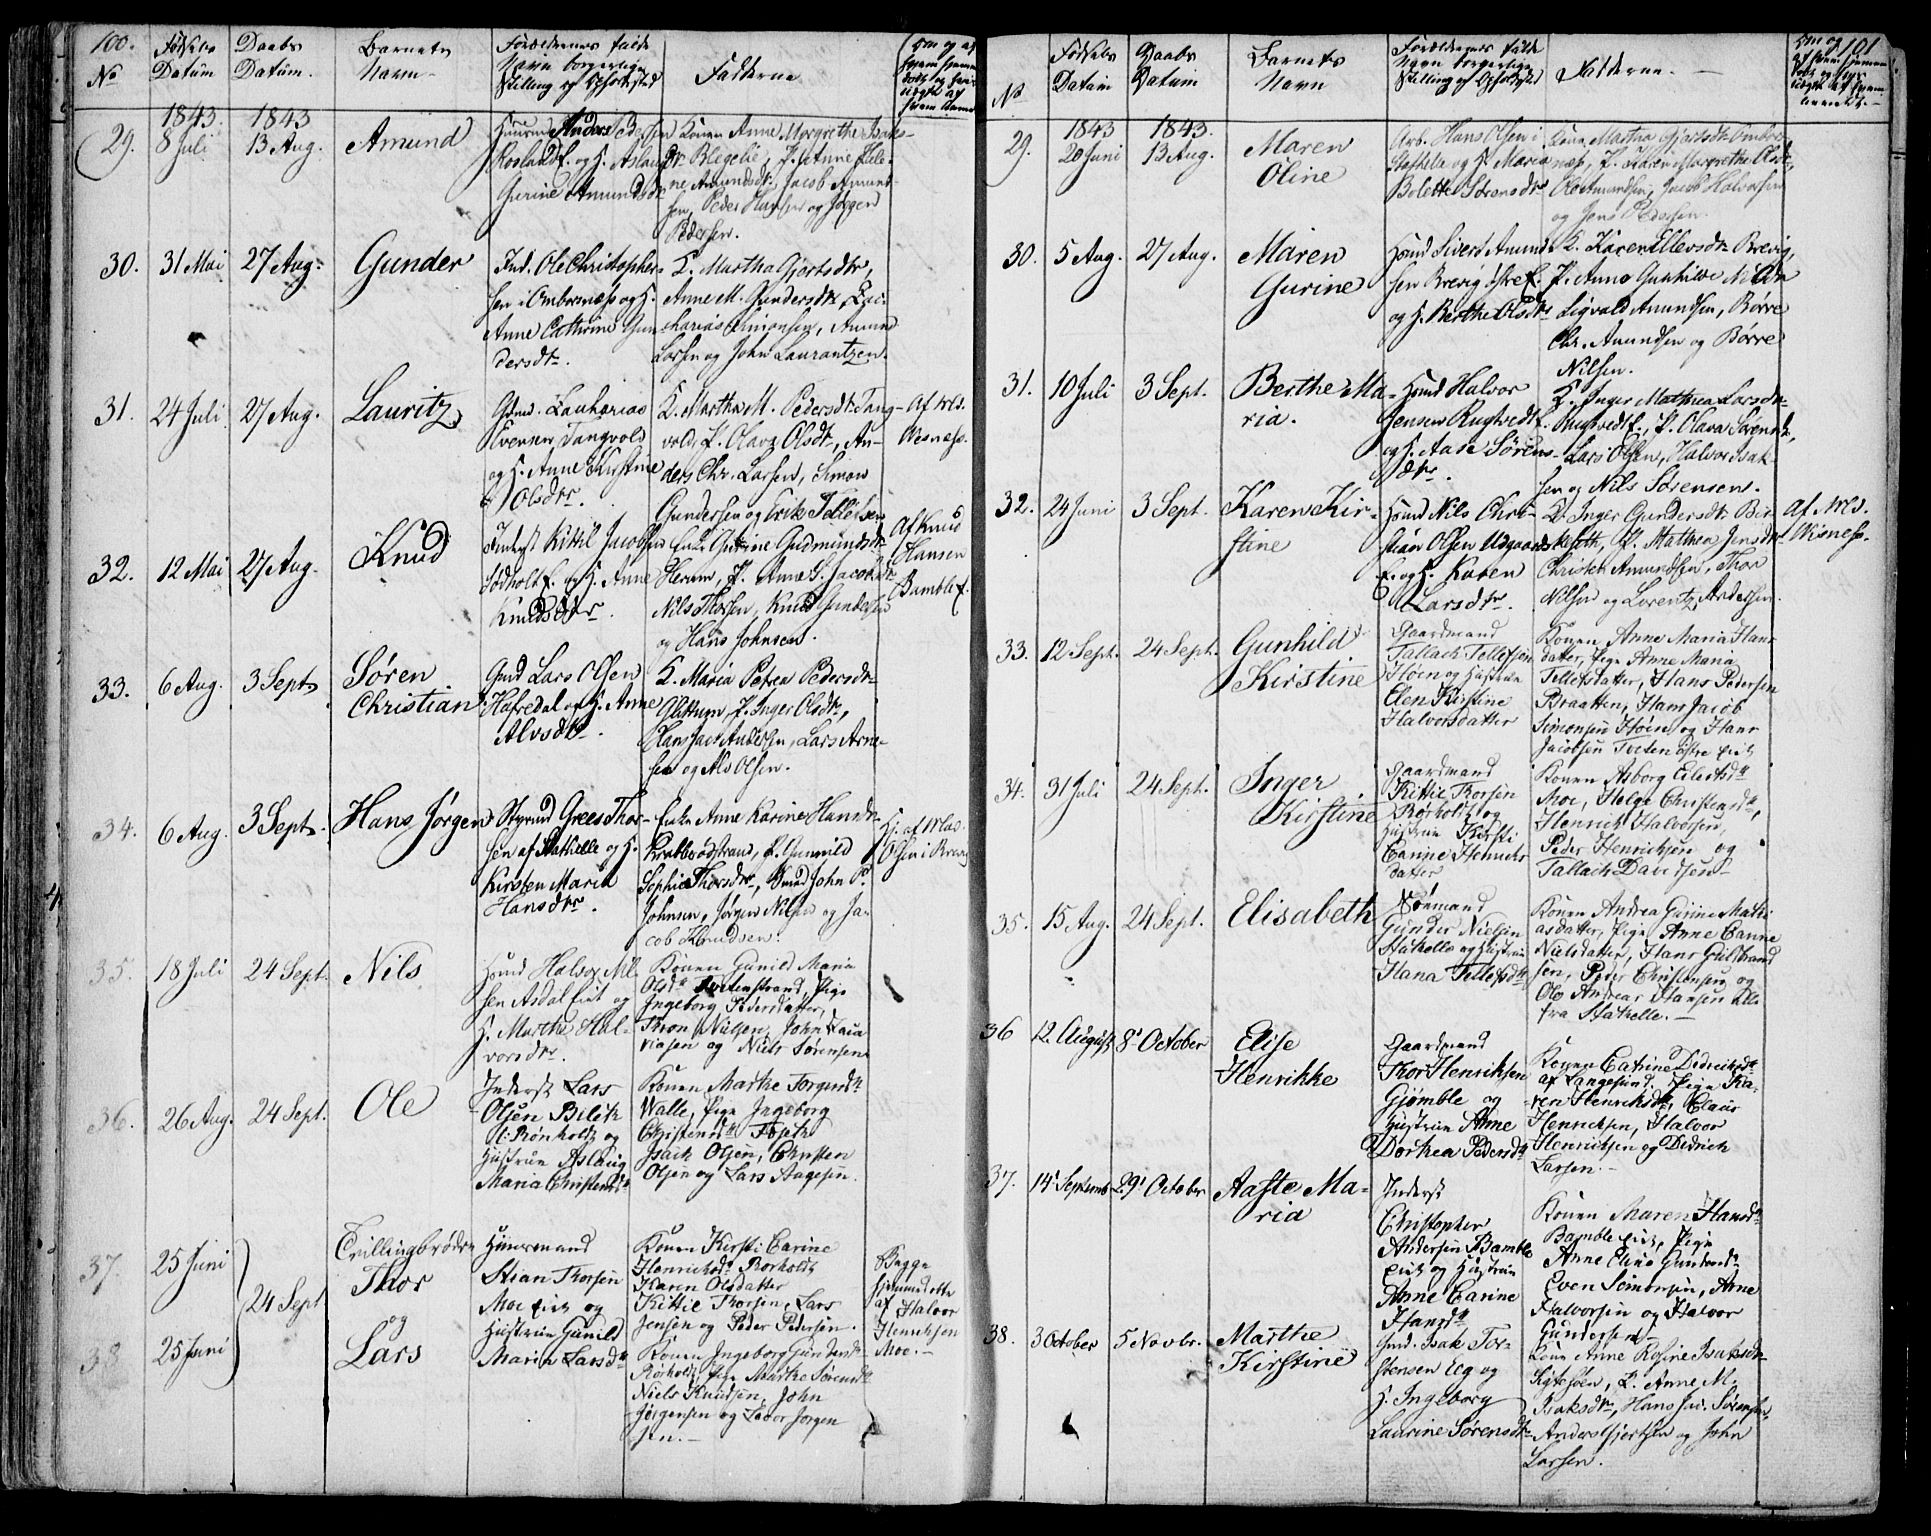 100.
No
Fødsels
Datum
Daabs
Datum.
Barnets
Navn
Forældrenes fulde
Navn borgerlige
Stilling og Opholdsted
Fadderne
1843. 1843
29. 8 Juli 13 Aug. Amund
Anders Pedersen
og H. Aslaug
Gurine Amundsdr
Konen Anne Margrethe Isaks-
dr. P. Anne Hele-
ne Amundsdr. Jacob Amund-
sen, Peder Hansen og Jørgen
Pedersen.
30. 31 Mai 27 Aug. Gunder
Ind. Ole Christopher-
sen i Ombornæs og H.
Anne Cathrine Gun-
dersdr.
K. Martha Gjertsdtr,
Anne M. Gundersdtr, Zac-
harias Simonsen, Amund
Larsen og John Laurantzen.
31. 24 Juli 27 Aug. Lauritz
Gdmd. Zacharias
Evensen Tangvold
og H. Anne Kirstine
Olsdtr.
K. Martha M. Pedersdtr Tang-
vold, P. Olava Olsdtr, An-
ders Chr. Larsen, Simon
Gundersen og Erik Tellefsen
Af Md.
Wisness.
32. 12 Mai 27 Aug. Knud
Inderst Kittil Jacobsen
og H. Anne
Knudsdtr.
Enke Gurine Gudmundsdr
Herum, P. Anne G. Jacobsdr
Nils Thorsen, Knud Gundersen
og Hans Johnsen.
Af Knud
Hansen
Bamble
33. 6 Aug. 3 Sept. Søren
Christian
Gmd Lars Olsen
Hafredal og H. Anne
Alvsdtr.
K. Maria Petrea Pedersdr
P. Inger Olsdtr,
Hans Jac. Andersen, Lars Arne-
sen og Als Olsen.
34. 6 Aug. 3 Sept. Hans Jørgen
Styrmd Grees Thor-
sen af Stathelle og H.
Kirsten Maria
Hansdtr.
Enke Anne Karine Hansdr
Krabberødstrand, P. Gunnild
Sophie Thorsdtr, Gmd John P.
Johnsen, Jørgen Nilsen og Ja-
cob Knudsen.
Hj. af Mad.
Olsen i Brevig
35. 18 Juli 24 Sept. Nils
Hmd Halvor Nil-
sen Asdal Eiet og
H. Marthe Hal-
vorsdtr.
Konen Gunild Maria
Olsdr Pige
Ingeborg Pedersdatter,
Thron Nielsen, John Zaca-
riasen og Niels Sørensen
36. 26 Aug. 24 Sept. Ole
Inderst Lars
Olsen
Rønholt og
Hustrue Aslaug
Maria Christensdr
Konen Marthe Torgersdr
Walle, Pige Ingeborg
Christensdr
Isach Olsen, Christen
Olsen og Lars Aagesen.
37. 25 Juni
38. 25 Juni
24 Sept.
Tvillingbrødre
Thor
og
Lars
Huusmand
Stian Thorsen
Moe Eiet og
Hustrue Gunild
Maria Larsdr
Konen Kirsti Carine
Henriksdr Rørholt
Karen Olsdatter
Kittil Thorsen, Lars
Jensen og Peder Pedersen.
Konen Ingeborg Gundersdr
Rørholt, Pige Marthe Sørensdr
Niels Knudsen, John
Jørgensen og Jørgen
sen.
Begge
hjemmedøbte
af Halvor
Henriksen
Moe.
101
No
Fødsels
Datum
Daabs
Datum
Barnets
Navn
Forældrenes fulde
Navn borgerlige
Stilling og Opholdsted
Fadderne.
1843 1843.
29. 20 Juni 13 Aug. Maren
Oline
Arb. Hans Olsen i
Stathelle og H. Maria
Bolette Sørensdr
Kone Martha Gjertsdtr Ombor-
næs, P. Karen Margrethe Olsdr,
Ole Amundsen, Jacob Halvorsen
og Jens Pedersen.
30. 5 Aug. 27 Aug. Maren
Gurine
Hsmd Sivert Amund-
sen Brevig
og H. Berthe Olsdr
K. Karen Ellevsdr Brevig,
P. Anne Gunhilde
Sigvald Amundsen, Børre
Chr. Amundsen og Børre
Nilsen.
31. 10 Juli 3 Sept. Berthe Ma-
ria.
Hsmd Halvor
Jensen Rugtvedt
og H. Aase Sørens-
dtr.
K. Inger Mathea Larsdr
Rugtvedt, P. Olava Sørensdr,
Lars Olsen, Halvor Isak-
sen og Nils Sørensen.
32. 24 Juni 3 Sept. Karen Kir-
stine
Hsmd Nils Chri-
stian Olsen Udgaard
og H. Karen
Larsdtr.
K. Inger Gundersdtr
P. Mathea Jensdr
Christen Amundsen, Thor
Nilsen og Lorentz Andersen.
Af Md.
Wisness.
33. 12 Sept. 24 Sept. Gunhild
Kirstine
Gaardmand
Tallach Tellefsen
Høen og Hustrue
Elen Kirstine
Halvorsdatter
Konen Anne Maria Hans-
datter, Pige Anne Maria
Tellefsdatter, Hans Pedersen
Braatten, Hans Jacob
Simonsen Høen og Hans
Jacobsen Tveten
34. 31 Juli 24 Sept. Inger
Kirstine
Gaardmand
Kittil Thorsen
Rørholt og
Hustrue Kirsti
Carine Henrichs
datter
Konen Asborg Eilertsdr
Moe, Helge Christensdr,
Henrik Halvorsen,
Peder Henrichsen og
Tallach Davidsen
35. 15 Aug. 24 Sept. Elisabeth
Sømand
Gunder Nielsen
Stathelle og Hustrue
Hana Tellefsdr
Konen Andrea Gurine Mathi-
asdatter, Pige Anne Canne
Nielsdatter, Hans Guldbrand
sen, Peder Christensen og
Ole Andreas Hansen Alle
fra Stathelle.
36 12. August 8. October Elise
Henrikke
Gaardmand
Thor Henriksen
Gjømble og
Hustrue Anne
Dorthea Pedersdr
Konen Catrine Didrichsdr
af Langesund. Pige Ka-
ren Henriksdr, Claus
Henrichsen, Halvor
Henrichsen og Didrich
Larsen.
37. 14 Septemb. 29 October Aaste Ma-
ria
Inderst
Christopher
Andersen Bamble
Eiet og Hustrue
Anne Carine
Hansdr
Konen Maren Hansdr
Bamble Eiet, Pige
Anne Eline Gundersdr
Even Simonsen, Arne
Halvorsen og Halvor
Gundersen
38. 3 October 5 Novbr. Marthe
Kirstine
Gmd. Isak Tor-
stensen Eeg og
H. Ingeborg
Laurine Sørensdr
Kone Anne Rosine Isaksdr
P. Anne M.
Isaksdtr, Hans Jac. Sørensen,
Anders Gjertsen og John
Larsen.